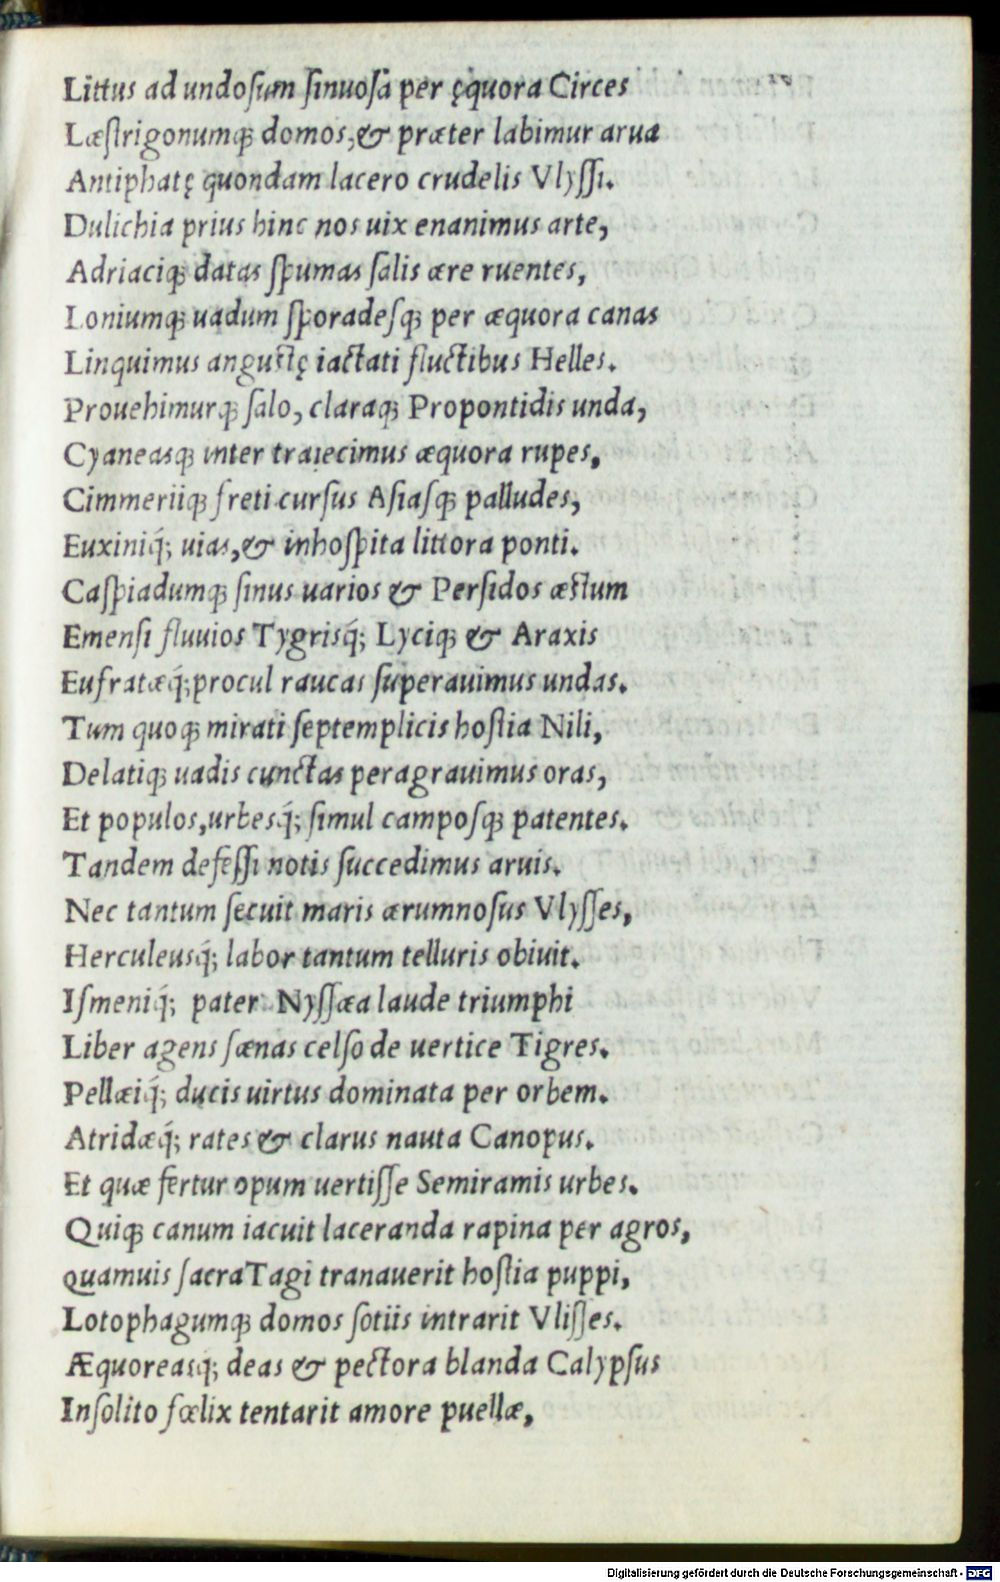 Littus ad undoſum ſinuoſa per ęquora Circes
Læſtrigonumq; domos, & præter labimur arua
Antiphatę quondam lacero crudelis Vlyſſi.
Dulichia prius hinc nos uix enanimus arte,
Adriaciq; datas ſpumas ſalis ære ruentes,
Loniumq; uadum ſporadeſq; per æquora canas
Linquimus anguſtę iactati fluctibus Helles.
Prouehimurq; ſalo, claraq; Propontidis unda,
Cyaneasq; inter traiecimus æquora rupes,
Cimmeriiq; freti curſus Aſiaſq; palludes,
Euxiniq́; uias, & inhoſpita littora ponti.
Caſpiadumq; ſinus uarios & Perſidos æſtum
Emenſi fluuios Tygrisq́; Lyciq; & Araxis
Eufratæq́; procul raucas ſuperauimus undas.
Tum quoq; mirati ſeptemplicis hoſtia Nili,
Delatiq; uadis cunctas peragrauimus oras,
Et populos, urbesq́; ſimul campoſq; patentes.
Tandem defeſſi notis ſuccedimus aruis.
Nec tantum ſecuit maris ærumnoſus Vlyſſes,
Herculeusq́; labor tantum telluris obiuit.
Iſmeniq́; pater Nyſſæa laude triumphi
Liber agens ſænas celſo de uertice Tigres.
Pellæiq́; ducis uirtus dominata per orbem.
Atridæq́; rates & clarus nauta Canopus.
Et quæ fertur opum uertiſſe Semiramis urbes.
Quiq; canum iacuit laceranda rapina per agros,
Quamuis ſacra Tagi tranauerit hoſtia puppi,
Lotophagumq; domos ſotiis intrarit Vliſſes.
Æquoreasq; deas & pectora blanda Calypſus
Inſolito fœlix tentarit amore puellæ,
Digitalisierung gefördert durch die Deutsche Forschungsgemeinschaft - DFG